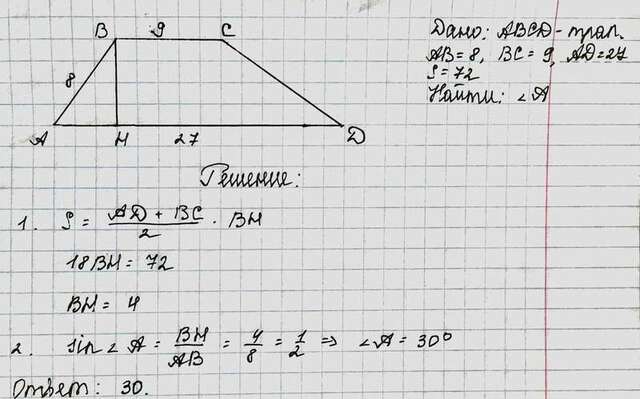 B 9 C
8
A H 27 D
Дано: ABCD - трап.
AB = 8, BC = 9, AD = 27
S = 72
Найти: ∠A
Решение:
1. S = (AD + BC)/2 · BH
18BH = 72
BH = 4
2. sin ∠A = BH/AB = 4/8 = 1/2 => ∠A = 30°
Ответ: 30.